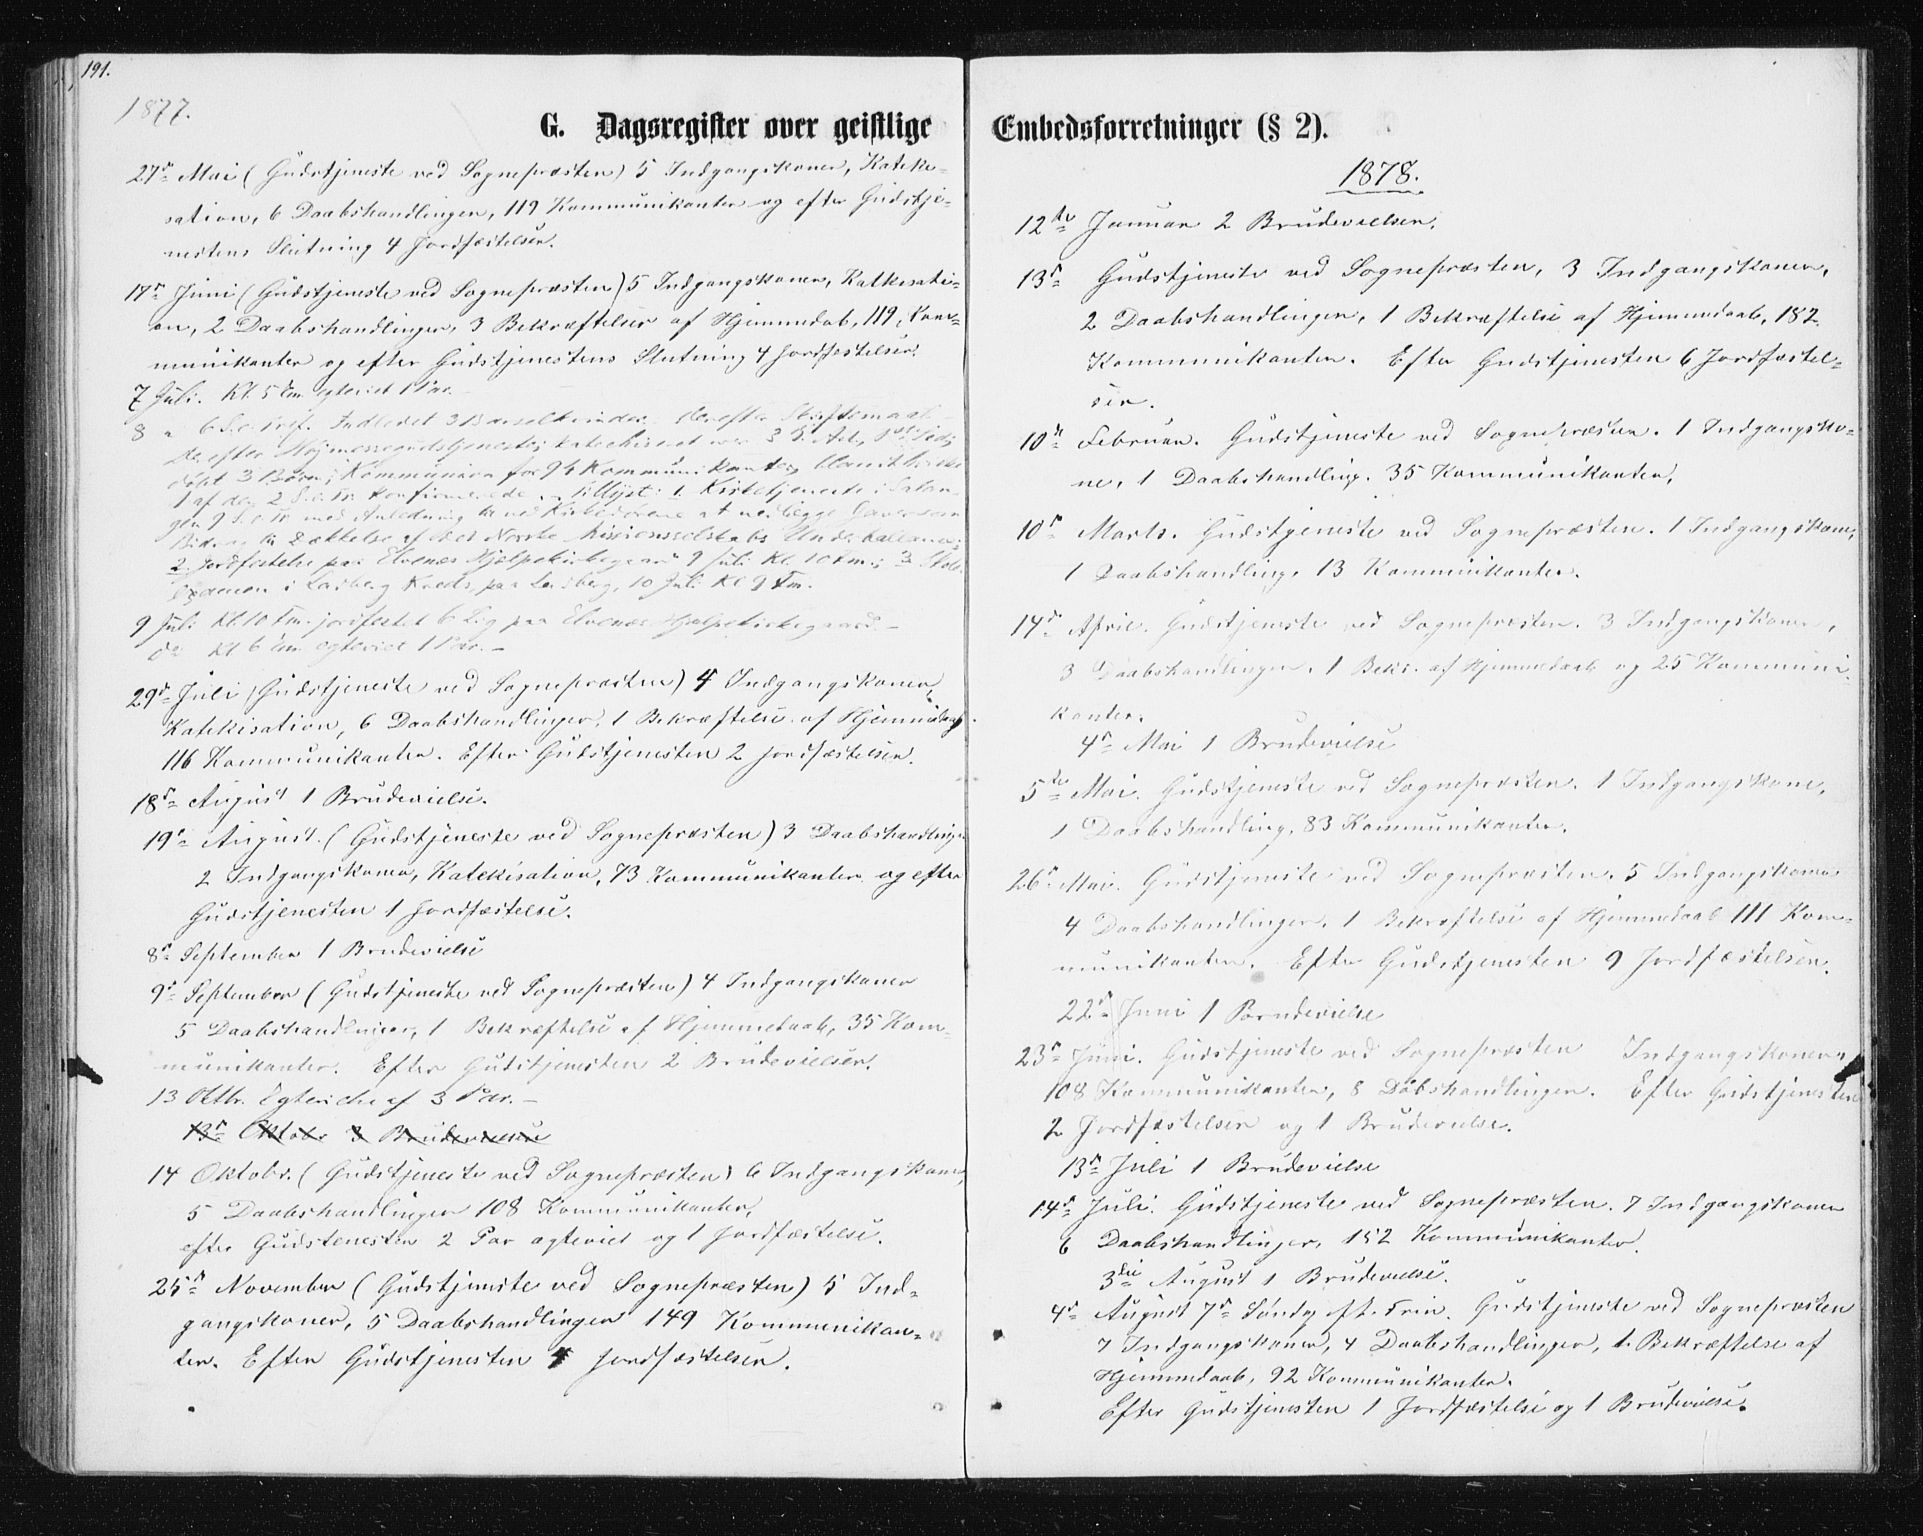 191.
1877.
G. Dagsregister over geistlige
27de Mai (Gudstjeneste ved Sognepræsten) 5 Indgangskoner, Kateke-
sation, 6 Daabshandlinger, 119 Kommunikanter og efter Gudstje-
nestens Slutning 4 Jordfæstelser.
17de Juni (Gudstjeneste ved Sognepræsten) 5 Indgangskoner, Katkesati-
on, 2 Daabshandlinger, 3 Bekræftelser af Hjemmedab, 119 Kom-
munikanter og efter Gudstjenestens Slutning 4 Jordfæstelser.
7 Juli. Kl. 5 Em. egteviet 1 Par.
8 " 6 S. e. Tref. Indledet 3 Barselkvinder. derefter Skriftemaal
derefter Høimessegudstjeneste; katechiseret
døbt 3 Børn; Kommunion for 94 Kommunikanter,
1 af de 2 S. e. Tr. konfirmerede. tillyst 1. Kirketjeneste i Salan-
gen 9 S. e. Tr. med Anledning til ved Kirkedørene at nedlægge Gaver som
Bidrag til Dækkelse af det Norske Missionsselskabs Underballance;
2 Jordfæstelse paa Elvenes Hjelpekirkegaard 9 Juli Kl. 10 Fm.; 3 Skole-
examen i Laberg Kreds, paa Laberg, 10 Juli Kl 9 Fm.
9 Juli Kl. 10 Fm. jordfæstet 6 Lig paa Elvenes Hjelpekirkegaard.
do Kl 6 Em. egteviet 1 Par.
29de Juli (Gudstjeneste ved Sognepræsten) 4 Indgangskoner,
Katekisation, 6 Daabshandlinger, 1 Bekræftelse af Hjemmedaab.
116 Kommunikanter. Efter Gudstjenesten 2 Jordfæstelser.
18de August 1 Brudevielse.
19de August. (Gudstjeneste ved Sognepræsten) 3 Daabshandlinger
2 Indgangskoner, Katekisation, 73 Kommunikanter og efter
Gudstjenesten 1 Jordfæstelse.
8de September 1 Brudevielse
9de September (Gudstjeneste ved Sognepræsten) 4 Indgangskoner
5 Daabshandlinger, 1 Bekræftelse af Hjemmedaab, 35 Kom-
munikanter. Efter Gudstjenesten 2 Brudevielser.
13 Oktbr. Egteviede af 3 Par.
13de Oktobr 3 Brudevielse
14 Oktobr. (Gudstjeneste ved Sognepræsten) 6 Indgangskoner,
5 Daabshandlinger 108 Kommunikanter,
efter Gudstenesten 2 Par egteviet og 1 Jordfæstelse.
25de November (Gudstjeneste ved Sognepræsten) 5 Ind-
gangskoner, 5 Daabshandlinger 149 Kommunikan-
ter. Efter Gudstjenesten 4 Jordfæstelser.
Embedsforretninger (§ 2).
1878.
12te Januar 2 Brudevielser.
13de Gudstjeneste ved Sognepræsten, 3 Indgangskoner,
2 Daabshandlinger, 1 Bekræftelse af Hjemmedaab, 182
Kommunikanter. Efter Gudstjenesten 6 Jordfæstel-
ser.
10de Februar. Gudstjeneste ved Sognepræsten. 1 Indgangsko-
ne, 1 Daabshandling. 35 Kommunikanter,
10de Marts. Gudstjeneste ved Sognepræsten. 1 Indgangskone,
1 Daabshandling, 13 Kommunikanter.
14de April. Gudstjeneste ved Sognepræsten. 3 Indgangskoner,
3 Daabshandlinger. 1 Bekr. af Hjemmedaab og 25 Kommuni-
kanter.
4de Mai 1 Brudevielse
5te Mai. Gudstjeneste ved Sognepræsten. 1 Indgangskone,
1 Daabshandling, 83 Kommunikanter.
26de Mai. Gudstjeneste ved Sognepræsten. 5 Indgangskoner
4 Daabshandlinger. 1 Bekræftelse af Hjemmedaab 111 Kom-
munikanter. Efter Gudstjenesten 9 Jordfæstelser.
22de Juni 1 Brudevielse
23de Juni. Gudstjeneste ved Sognepræsten Indgangskoner,
108 Kommunikanter, 8 Dåbshandlinger. Efter Gudstjenesten
2 Jordfæstelser og 1 Brudevielse.
13de Juli 1 Brudevielse
14de Juli. Gudstjeneste ved Sognepræsten. 7 Indgangskoner
6 Daabshandlinger, 152 Kommunikanter.
3die August 1 Brudevielse.
4de August 7de Søndg eft. Trin. Gudstjeneste ved Sognepræsten
7 Indgangskoner, 4 Daabshandlinger, 1 Bekræftelse af
Hjemmedaab, 92 Kommunikanter.
Efter Gudstjenesten 1 Jordfæstelse og 1 Brudevielse.